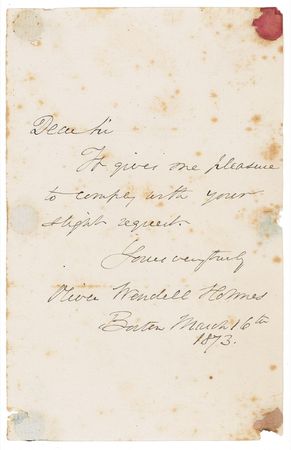 Dear Sir
It gives me pleasure
to comply with your
slight request.
Yours very truly
Oliver Wendell Holmes
Boston March 16th
1873.